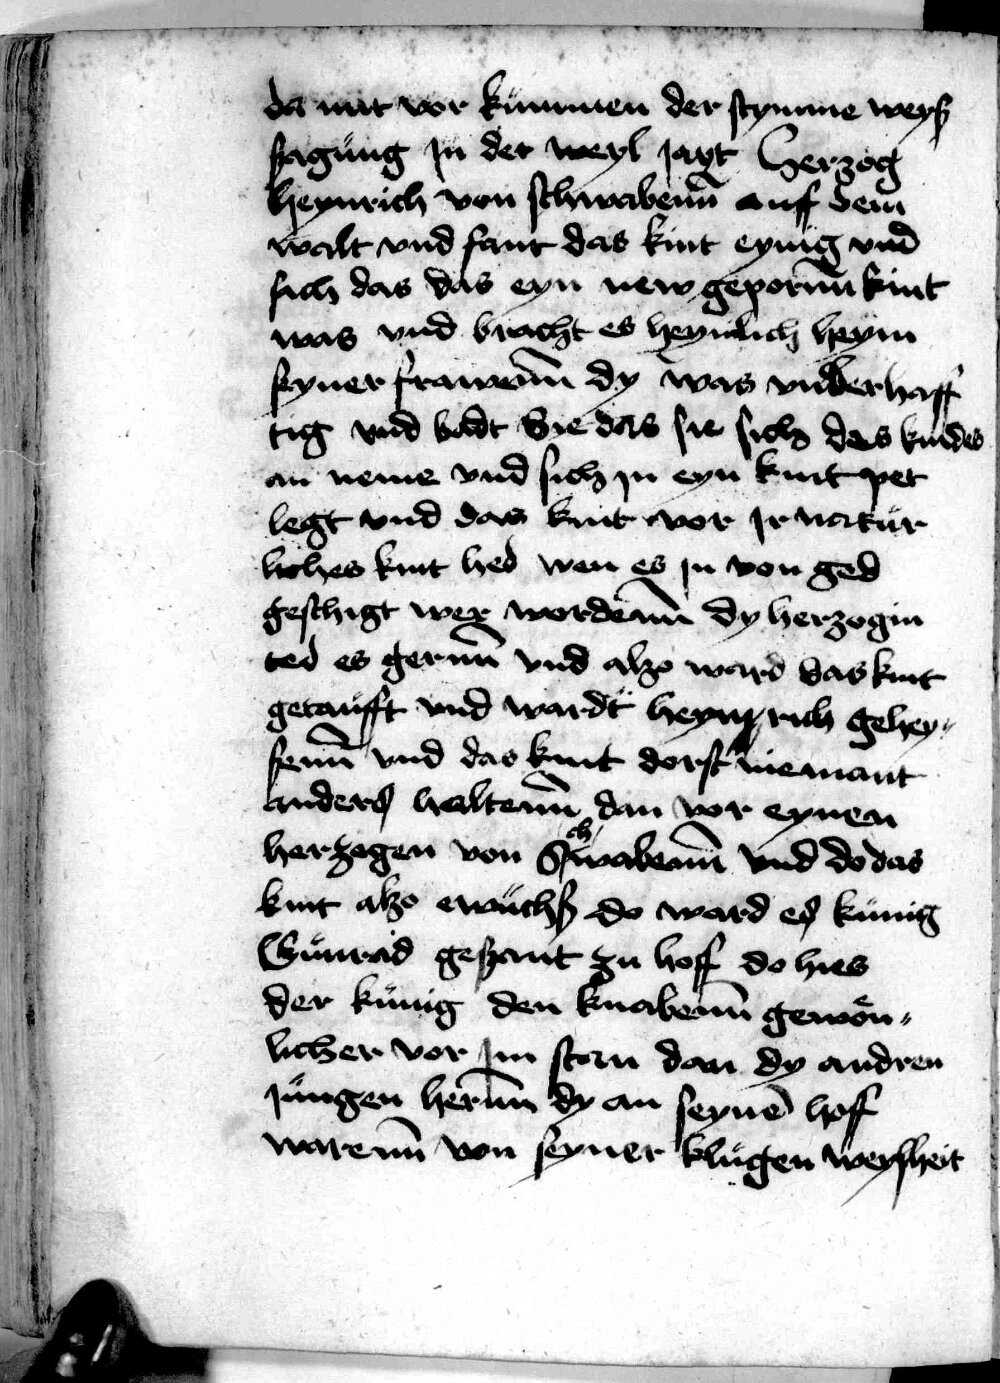 da mit vor kümmen der stymme weyß
sagüng Jn der weyl Jagt Herzog
heynrich von schwabenn̄ auff dem
walt vnd fant das kint eynig vnd
sich das das eyn new geporn̄n kint
was vnd bracht es heymlich heym
seyner frawenn̄ dy was vnberhaff
tig vnd badt Sie das sie sich des kindes
an neme vnd sich Jn eyn kint pet
legt vnd das kint vor Jr natür
liches kint hed wen es Jn von ged
geschigt wer wordenn̄ dy herzogin
ted es gernn̄ vnd also ward das kint
getaüfft vnd wardt heynrich gehey〃
senn̄ vnd das kint dorst niemant
anders haltenn̄ dan vor eynen
herzogen von Schwabenn̄ vnd do das
kint also erwüchß do ward es künig
Cünrad gesant zu hoff do hies
der künig den knabenn̄ gewön〃
licher vor Jm stan dan dy andren
Jüngen hernn̄ dy an seynē hoff
warenn̄ von seyner klügen weysheit